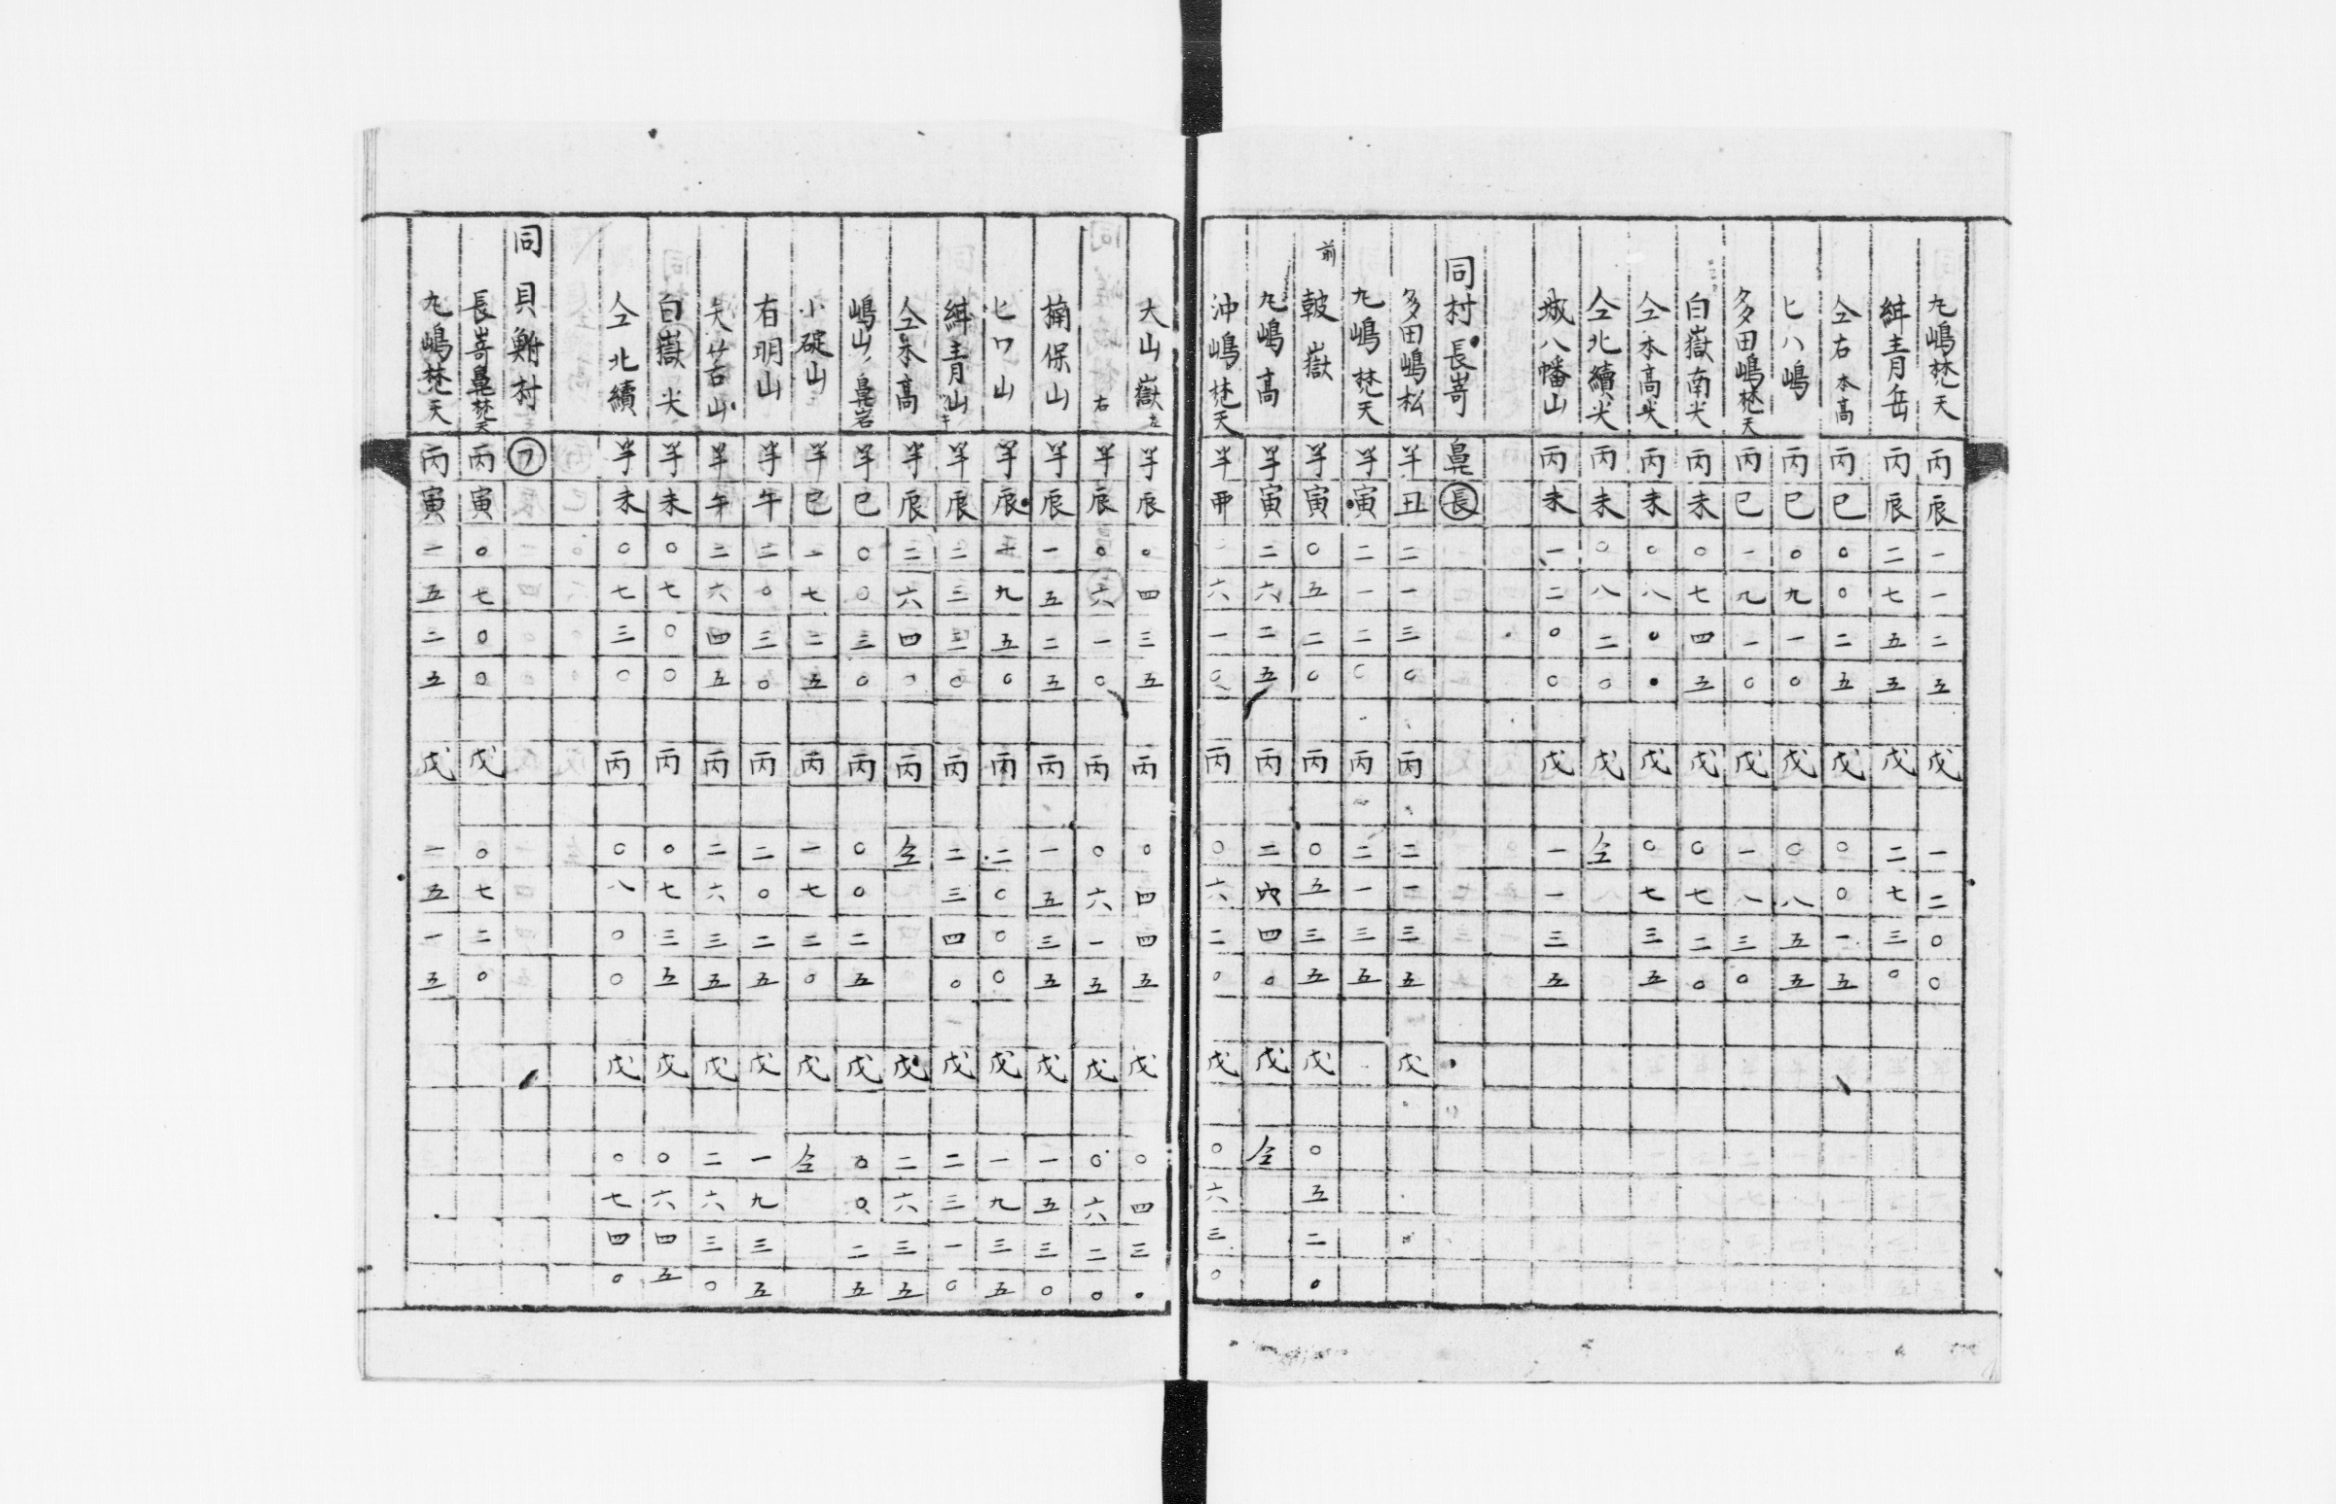 九嶋梵天 丙辰一一二五 戊 一二〇〇
絆青岳 丙辰二七五五 戊 二七三〇
仝右本高 丙巳〇〇二五 戊 〇〇一五
ヒハ嶋 丙巳〇九一〇 戊 〇八五五
多田嶋梵天 丙巳一九一〇 戊 一八三〇
白嶽南犬 丙未〇七四五 戊 〇七二〇
仝本高犬 丙未〇八〇〇 戊 〇七三五
仝北續犬 丙未〇八二〇 戊 仝
城八幡山 丙未一二〇〇 戊 一一三五
同村長嵜鼻 長
多田嶋松 羊丑二一三〇 丙 二一三五 戊
九嶋梵天 羊寅二一二〇 丙 二一三五
前 皷嶽 羊寅〇五二〇 丙 〇五三五 戊 〇五二〇
九嶋高 羊寅二六二五 丙 二六四〇 戊 仝
沖嶋梵天 羊 六一〇 丙 〇六二〇 戊 〇六三〇
大山嶽左 羊辰〇四三五 丙 〇四四五 戊 〇四三〇
右 羊辰〇六一〇 丙 〇六一五 戊 〇六二〇
楠保山 羊辰一五二五 丙 一五三五 戊 一五三〇
ヒワ山 羊辰 九五〇 丙 二〇〇〇 戊 一九三五
絆青山 羊辰二三三〇 丙 二三四〇 戊 二三一〇
仝本高 羊辰二六四〇 丙 仝 戊 二六三五
嶋山ノ鼻岩 羊巳〇〇三〇 丙 〇〇二五 戊 〇〇二五
小碇山 羊巳一七二五 丙 一七三〇 戊 仝
右明山 羊午二〇三〇 丙 二〇二五 戊 一九三五
矢苦山 羊午二六四五 丙 二六三五 戊 二六三〇
白嶽犬 羊未〇七〇〇 丙 〇七三五 戊 〇六四五
仝北續 羊未〇七三〇 丙 〇八〇〇 戊 〇七四〇
同貝鮒村 フ
長嵜鼻梵天 丙寅〇七〇〇 戊 〇七二〇
九嶋梵天 丙寅一五二五 戊 一五一五